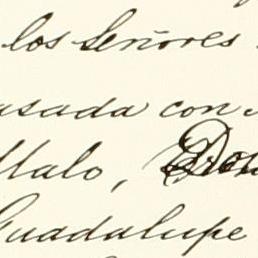 los Señores
asada con
Malo,
Guadalupe